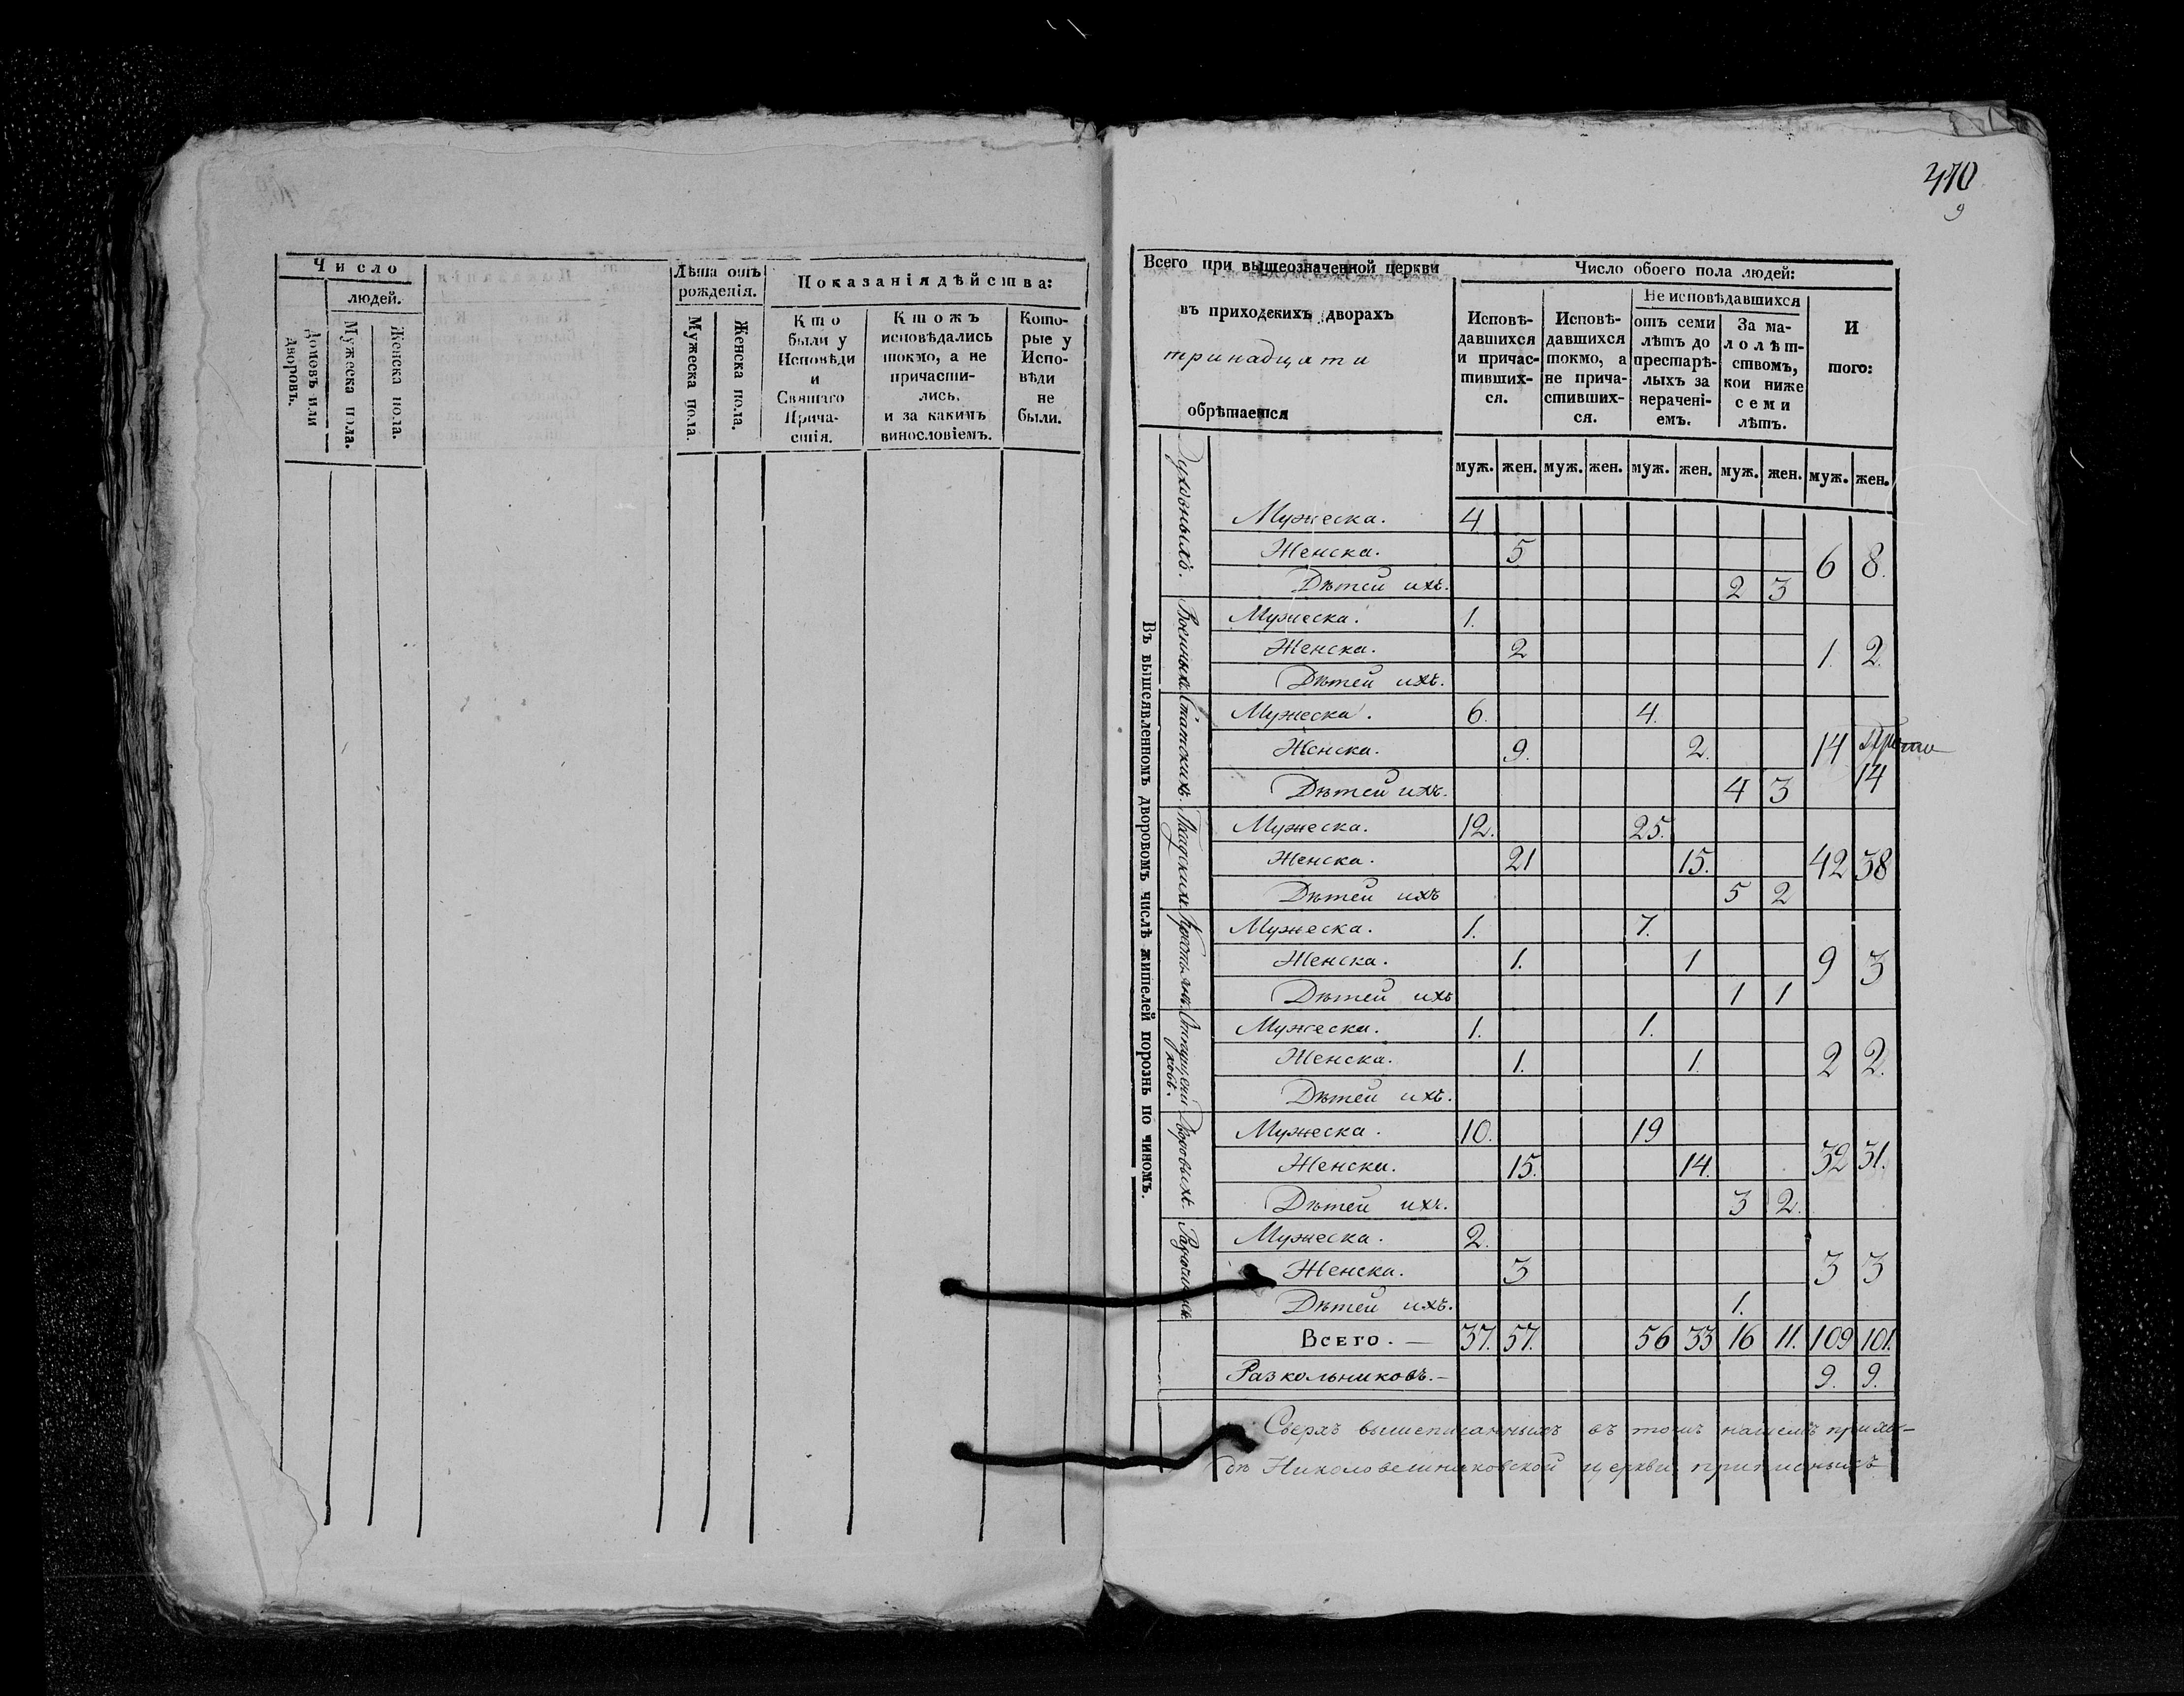 410
9
Число
людей.
Домовъ или дворовъ.
Мужеска пола.
Женска пола.
Лѣта отъ рожденія.
Мужеска пола.
Женска пола.
Показанія дѣйства:
Кто были у Исповѣди и Святаго Причастія.
Кто жъ исповѣдались токмо, а не причастились, и за какимъ винословіемъ.
Которые у Исповѣди не были.
Всего при вышеозначенной церкви
въ приходскихъ дворахъ
тринадцати
обрѣтается
Число обоего пола людей:
Исповѣдавшихся и причастившихся.
Исповѣдавшихся токмо, а не причастившихся.
Не исповѣдавшихся
отъ семи лѣтъ до престарѣлыхъ за нераченіемъ.
За малолѣтствомъ, кои ниже семи лѣтъ.
И того:
муж. жен. муж. жен. муж. жен. муж. жен. муж. жен.
Въ вышеявленномъ дворовомъ числѣ жителей порознь по чиномъ.
Духовныхъ.
Мужеска. 4
Женска. 5 6 8.
Дѣтей ихъ. 2 3
Военныхъ.
Мужеска. 1.
Женска. 2 1. 2.
Дѣтей ихъ.
Статскихъ.
Мужеска. 6. 4.
Женска. 9. 2. 14
Дѣтей ихъ. 4 3 14
Градскихъ.
Мужеска. 12. 25.
Женска. 21 15. 42 38
Дѣтей ихъ 5 2
Крестьянъ.
Мужеска. 1. 7.
Женска. 1. 1 9 3
Дѣтей ихъ 1 1
Мужеска. 1. 1.
Женска. 1. 1. 2 2.
Дѣтей ихъ.
Дворовыхъ.
Мужеска. 10. 19
Женска. 15. 14. 32 31.
Дѣтей ихъ. 3 2.
Мужеска. 2.
Женска. 3 3 3
Дѣтей ихъ. 1.
Всего. — 37. 57. 56 33 16 11. 109 101.
Разкольниковъ. — 9. 9.
Сверхъ вышеписанныхъ въ томъ нашемъ прихо-
дѣ церкви приписныхъ